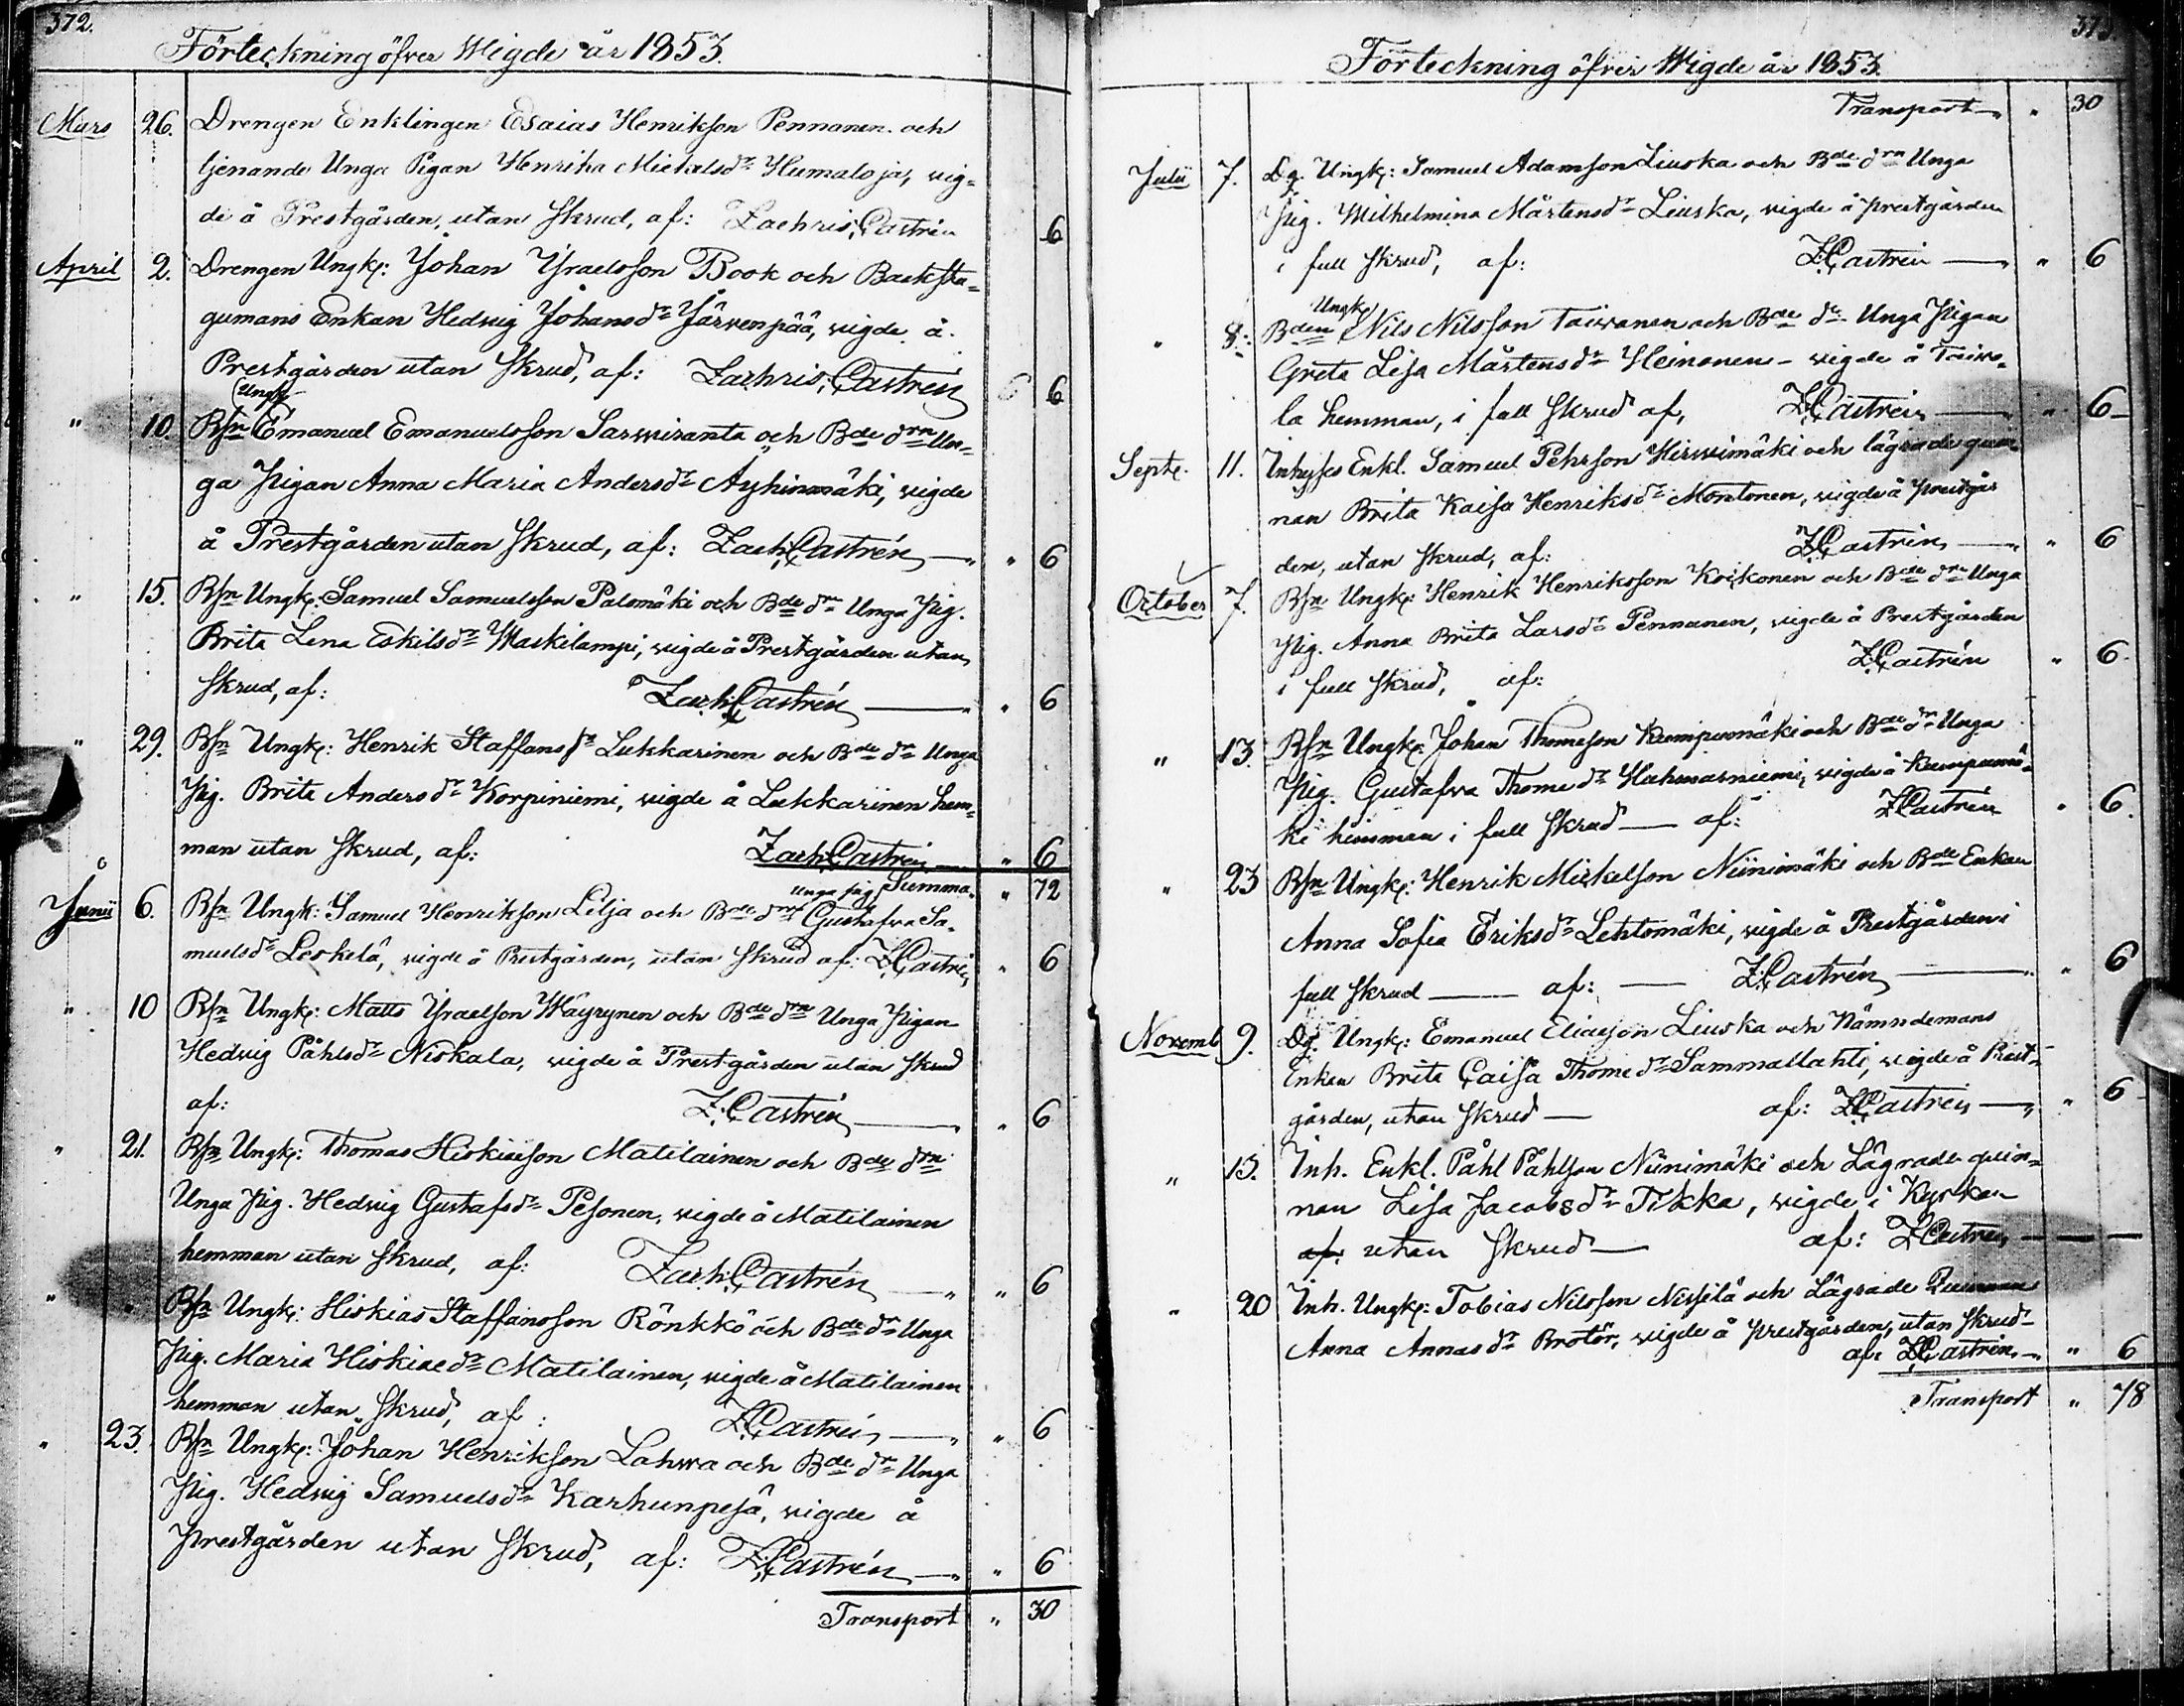 372.
Förteckning öfver Wigde år 1853.
Mars 26. Drengen Enklingen Esaias Henrikson Pennanen och
tjenande Unga Pigan Henrika Michelsdr Humaloja, vig-
de å Prestgården, utan Skrud, af: Zachris Castrén 6
April 2. Drengen Ungk: Johan Yraelsson Book och Backstu-
gumans Enkan Hedvig Johansdr Järvenpää, vigde å
Prestgården utan Skrud, af: Zachris Castrén 6 6
Ungk
" 10. Bsn Emanuel Emanuelsson Sarwiranta och Bde drn Un-
ga Pigan Anna Maria Andersdr Äyhinmäki, vigde
å Prestgården utan Skrud, af: Zach. Castrén — " 6
" 15. Bsn Ungk: Samuel Samuelsson Palomäki och Bde drn Unga Pig.
Brita Lena Eskilsdr Waskilampi, vigde å Prestgården utan
Skrud, af: Zach: Castrén — " 6
" 29. Bsn Ungk: Henrik Staffansdr Lukkarinen och Bde dn Unga
Pig. Brita Andersdr Korpiniemi, vigde å Lukkarinen hem-
man utan Skrud, af: Zach Castrén — " 6
Summa " 72
unga pig
Junii 6. Bsn Ungk: Samuel Henrikson Lilja och Bde drn Gustafva Sa-
muelsdr Leskelä, vigde å Prestgården, utan Skrud af: Z. Castrén " 6
" 10 Bsn Ungk: Matts Yraelson Wäyrynen och Bde drn Unga Pigan
Hedvig Påhlsdr Niskala, vigde å Prestgården utan Skrud
af: Z. Castrén — " 6
" 21. Bsn Ungk: Thomas Hiskiasson Matilainen och Bde drn
Unga Pig. Hedvig Gustafsdr Pesonen, vigde å Matilainen
hemman utan Skrud, af: Zach: Castrén — " " 6
" " Bsn Ungk: Hiskias Staffansson Rönkkö och Bde dn Unga
Pig. Maria Hiskiaedr Matilainen, vigde å Matilainen
hemman utan Skrud, af: Z. Castrén — " 6
" 23. Bsn Ungk: Johan Henrikson Lahwa och Bde dn Unga
Pig. Hedvig Samuelsdr Karhunpesä, vigde å
Prestgården utan Skrud, af: Z. Castrén — " 6
Transport " 30
373.
Förteckning öfver Wigde år 1853.
Transport " 30
Julii 7. Dg. Ungk: Samuel Adamson Liuska och Bde drn Unga
Pig. Wilhelmina Mårtensdr Liuska, vigde å prestgården
i full Skrud, af: Z. Castrén — " 6
Ungk
" 8. Bden Nils Nilsson Taiwanen och Bde dr Unga Pigan
Greta Lisa Mårtensdr Heinonen — vigde å Taiwa-
la hemman, i full Skrud af, Z. Castrén — " 6
Septe. 11. Inhyses Enkl. Samuel Pehrson Hirwimäki och lägrade quin-
nan Brita Kaisa Henriksdr Montonen, vigde å prestgår
den, utan Skrud, af: Z. Castrén — " 6
October 7. Bsn Ungk: Henrik Henriksson Koikonen och Bde drn Unga
Pig. Anna Brita Larsdr Pennanen, vigde å Prestgården
i full Skrud, af: Z. Castrén " 6
" 13. Bsn Ungk: Johan Thomeson Kumpumäki och Bde dn Unga
Pig. Gustafva Thomedr Huhmarniemi, vigde å Kumpumä-
ki hemman i full Skrud — af: Z. Castrén " 6
" 23 Bsn Ungk: Henrik Michelson Niinimäki och Bde Enkan
Anna Sofia Eriksdr Lehtomäki, vigde å Prestgården i
full Skrud — af: — Z. Castrén — " 6
Novemb 9. Dg. Ungk: Emanuel Eliasson Liuska och Nämndemans
Enkan Brita Caisa Thomedr Sammallahti, vigde å Prest-
gården, utan Skrud — af: Z. Castrén — " 6
" 13. Inh. Enkl. Påhl Påhlson Niinimäki och Lägrade quin-
nan Lisa Jacobsdr Tikka, vigde i Kyrkan
af: utan Skrud — af: Z Castrén — —
" 20 Inh. Ungk: Tobias Nilsson Nissilä och Lägrade Quinnan
Anna Annasdr Brotör, vigde å prestgården, utan Skrud
af: Z. Castrén — " 6
Transport " 78